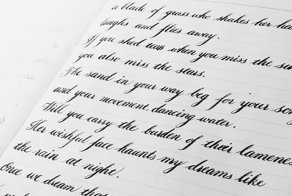 a blade of grass who shakes her ha
laughs and flies away.
If you shed tears when you miss the su
you also miss the stars.
The sand in your way beg for your son
and your movement dancing water.
Will you carry the burden of their lamenes
Her wishful face haunts my dreams like
the rain at night.
Once we dream that